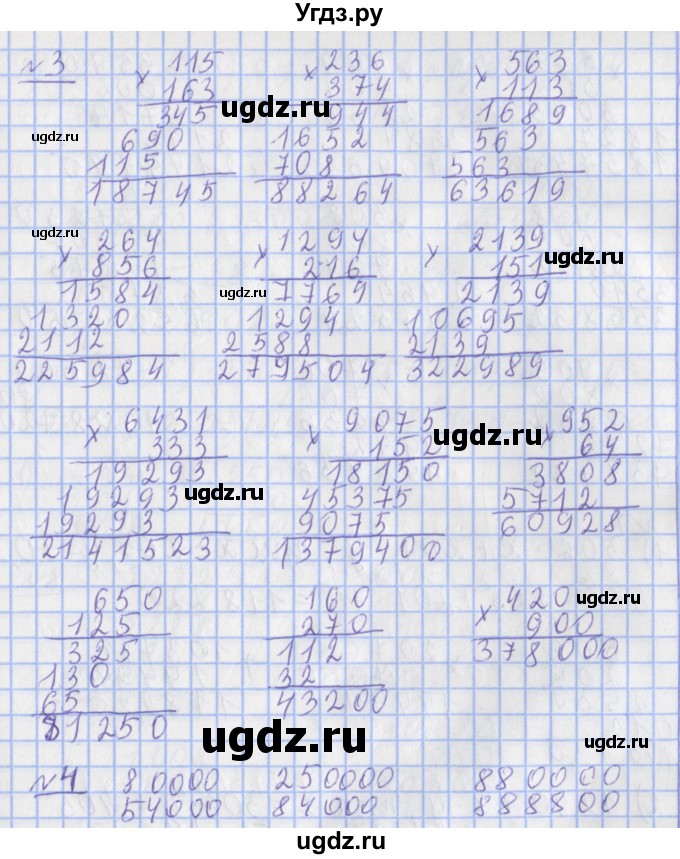 Угдз.ру
№3
× 115 × 236 × 563
163 374 113
345 944 1689
690 1652 563
115 708 563
18745 88264 63619
× 264 × 1294 × 2139
856 216 151
1584 7764 2139
1320 1294 10695
2112 2588 2139
225984 279504 322989
× 6431 × 9075 × 952
333 152 64
19293 18150 3808
19293 45375 5712
19293 9075 60928
2141523 1379400
650 160 × 420
125 270 900
325 112 378000
130 32
65 43200
81250
№4 80000 250000 880000
54000 84000 888800
ugdz.ru
ugdz.ru
ugdz.ru
ugdz.ru
ugdz.ru
ugdz.ru
ugdz.ru
ugdz.ru
ugdz.ru
ugdz.ru
ugdz.ru
ugdz.ru
ugdz.ru
ugdz.ru